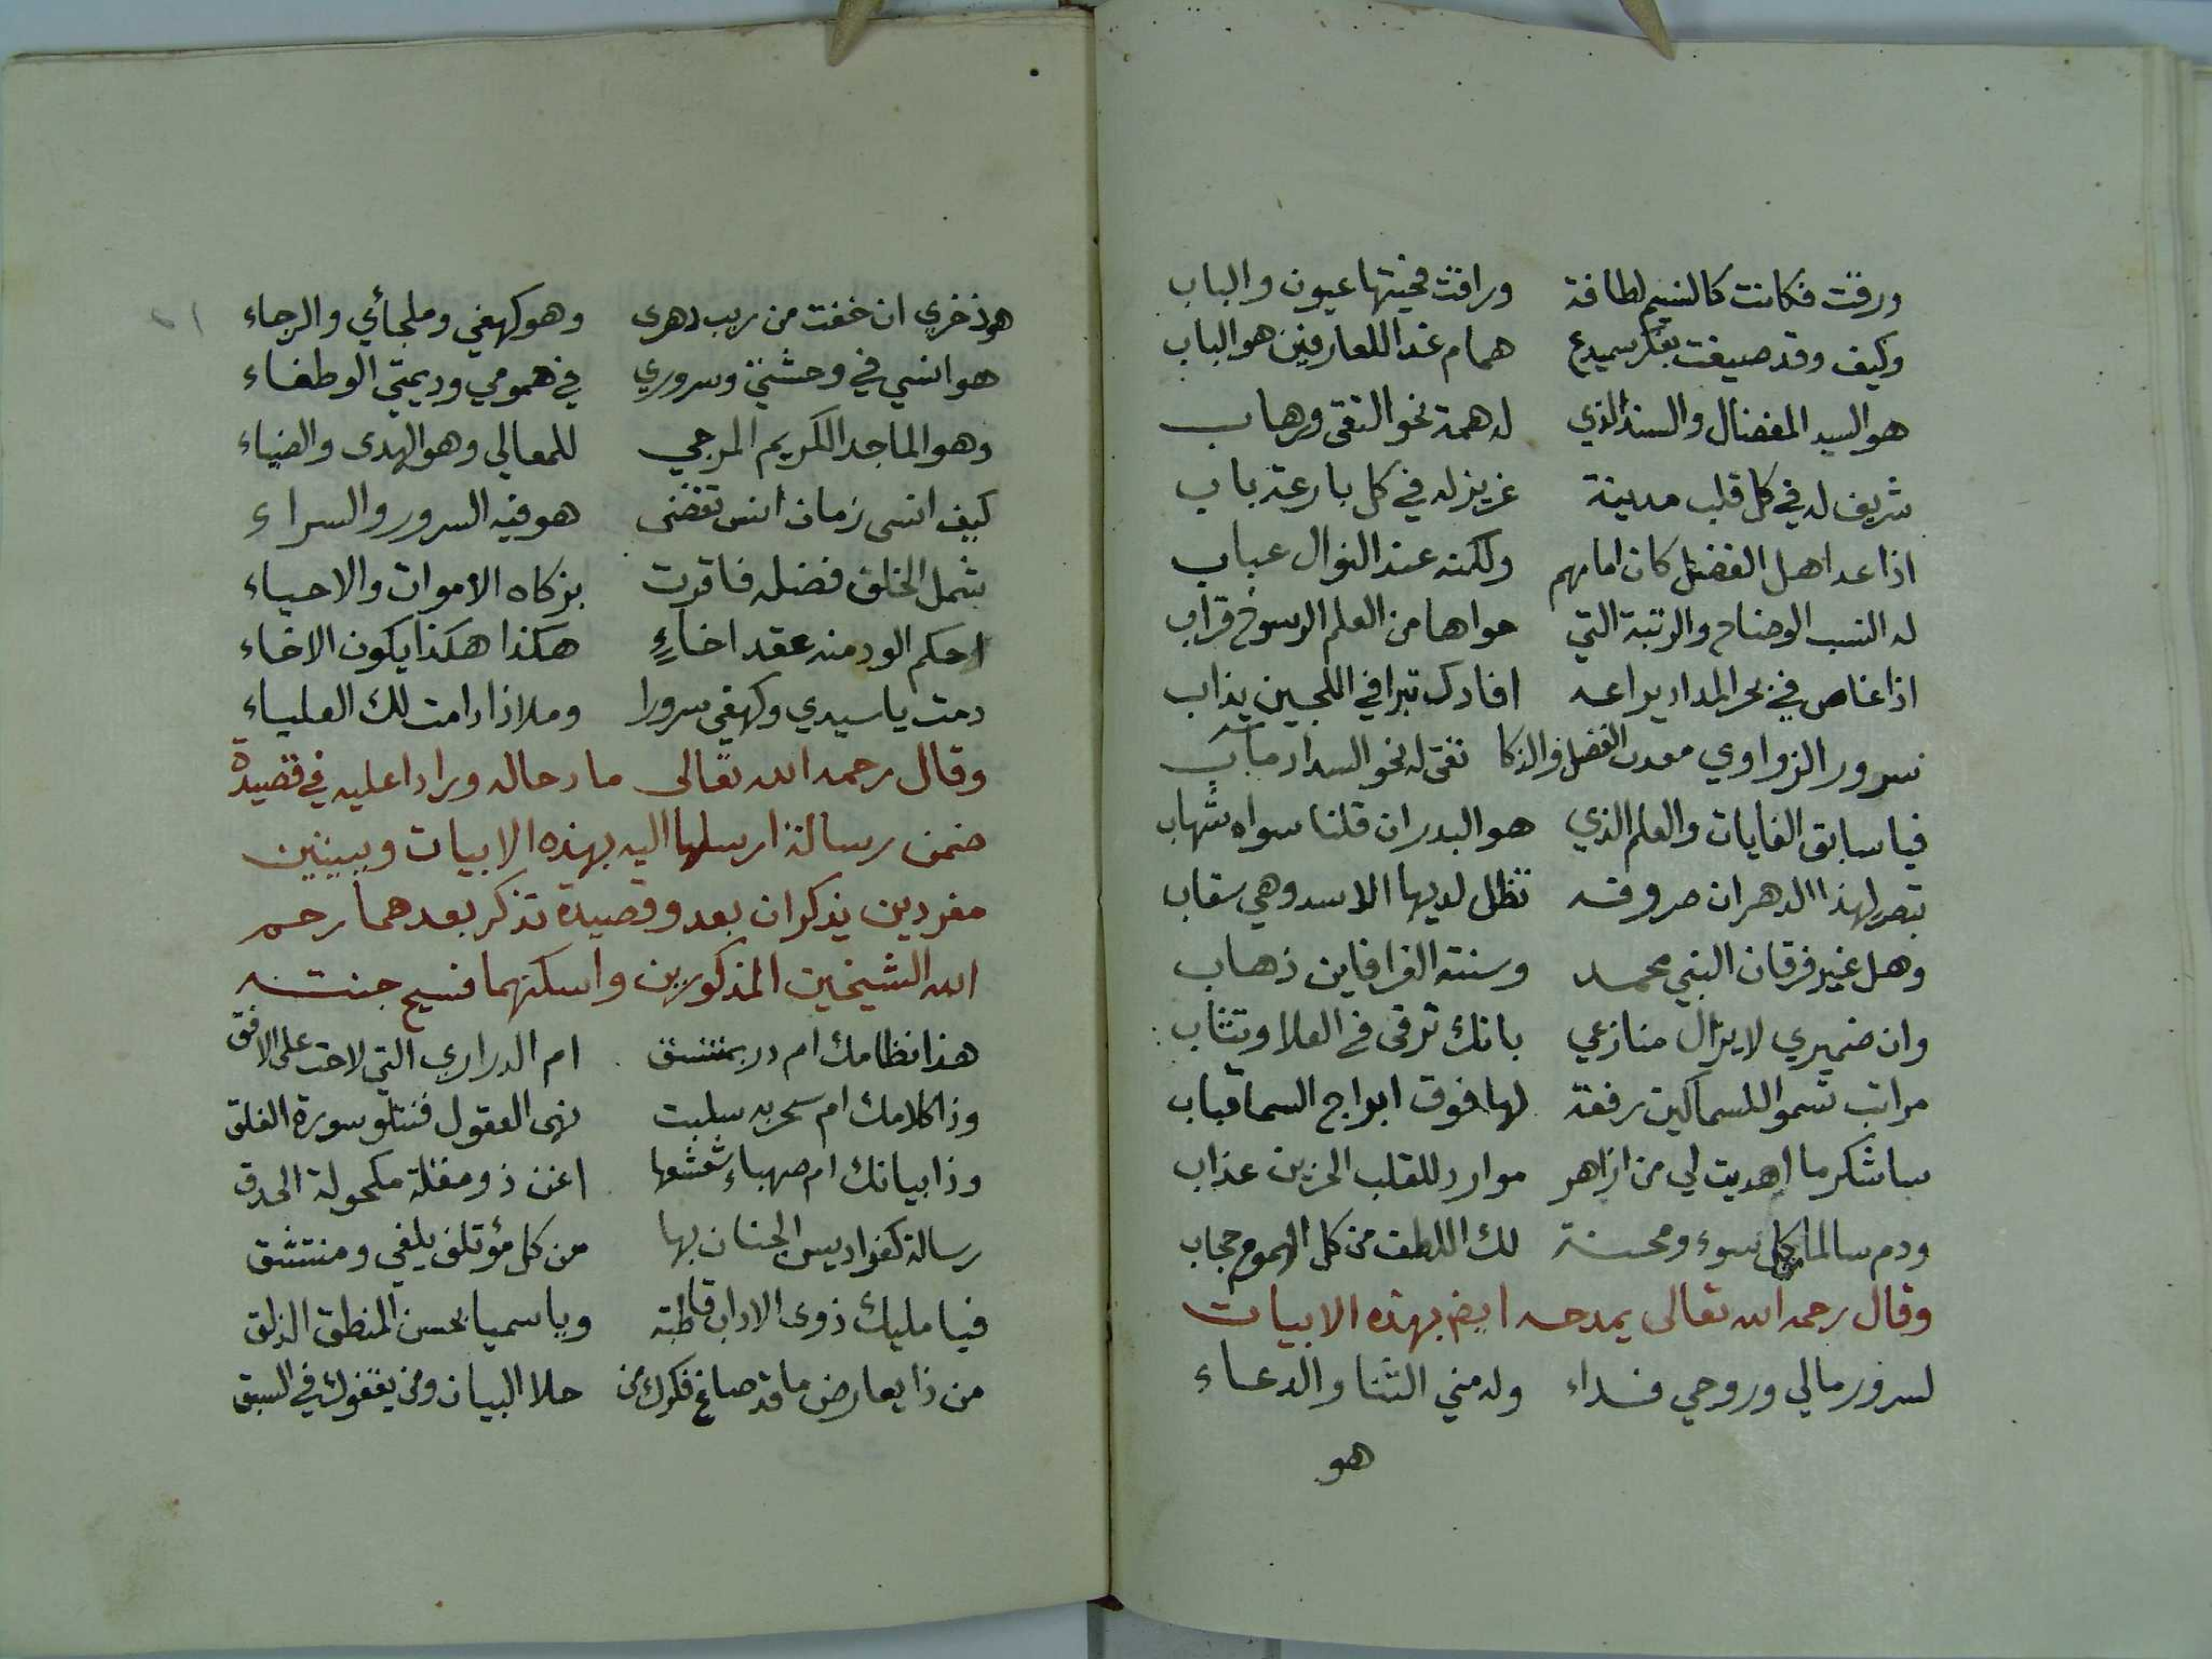 ورقت فكانت كالنسيم لطافة وراقت فحيتها عيون والباب
وكيف وقد صيغت بفكر سميدع همام غدا للعارفين هو الباب
هو السيد المفضال والسند الذي له همة نحو التقى ورهاب
شريف له في كل قلب مدينة عزيز له في كل بارعة باب
اذا عد اهل الفضل كان امامهم ولكنه عند النوال عباب
له النسب الوضاح والرتبة التي حواها من العلم الرسوخ قراب
اذا غاص في بحر المداد يراعه افادك تبرا في اللجين يذاب
سرور الزواوي معدن الفضل والذكا تقى له نحو السداد مآب
فيا سابق الغايات والعلم الذي هو البدر ان قلنا سواه شهاب
تبصر لهذا الدهر ان صروفه تظل لديها الاسد وهي سقاب
وهل غير فرقان النبي محمد وسنته الغرا فاين ذهاب
وان ضميري لا يزال منازعي بانك ترقى في العلا وتثاب
مراتب تسمو للسماكين رفعة لها فوق ابواج السما قباب
ساشكر ما اهديت لي من ازاهر موارد للقلب الحزين عذاب
ودم سالما من كل سوء ومحنة لك اللطف من كل الهموم حجاب
وقال رحمه الله تعالى يمدحه ايض بهذه الابيات
لسرور مالي وروحي فداء وله مني الثنا والدعاء
هو
هو ذخري ان خفت من ريب دهرى وهو كهفي وملجائي والرجاء
هو انسي في وحشتي وسروري في همومي وديمتي الوطفاء
وهو الماجد الكريم المرجي للمعالي وهو الهدى والضياء
كيف انسى زمان انس تقضى هو فيه السرور والسراء
شمل الخلق فضله فاقرت بزكاه الاموات والاحياء
احكم الود منه عقد اخاءٍ هكذا هكذا يكون الاخاء
دمت يا سيدي وكهفي سرورا وملاذا دامت لك العلياء
وقال رحمه الله تعالى مادحا له ورادا عليه في قصيدة
ضمن رسالة ارسلها اليه بهذه الابيات وببيتين
مفردين يذكران بعد وقصيدة تذكر بعدهما رحم
الله الشيخين المذكورين واسكنهما فسيح جنته
هذا نظامك ام در بمتسق ام الدراري التي لاحت على الافق
وذا كلامك ام سحر به سلبت نهى العقول فنتلو سورة الفلق
وذا بيانك ام صهباء شعشعها اغن ذو مقلة مكحولة الحدق
رسالة كفراديس الجنان بها من كل مؤتلف يلفي ومنتشق
فيا مليك ذوى الاداب قاطبة ويا سميا بحسن المنطق الذلق
من ذا يعارض ما قد صاغ فكرك من حلا البيان ومن يقفوك في السبق